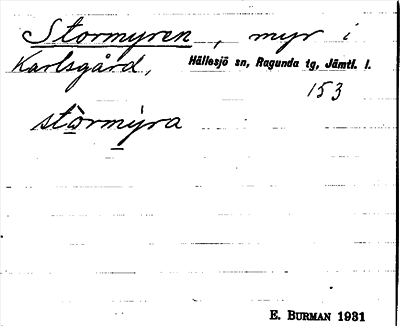 Stormyren, myr i
Karlsgård, Hällesjö sn, Ragunda tg, Jämtl. l.
153
stòrmýra
E. BURMAN 1931